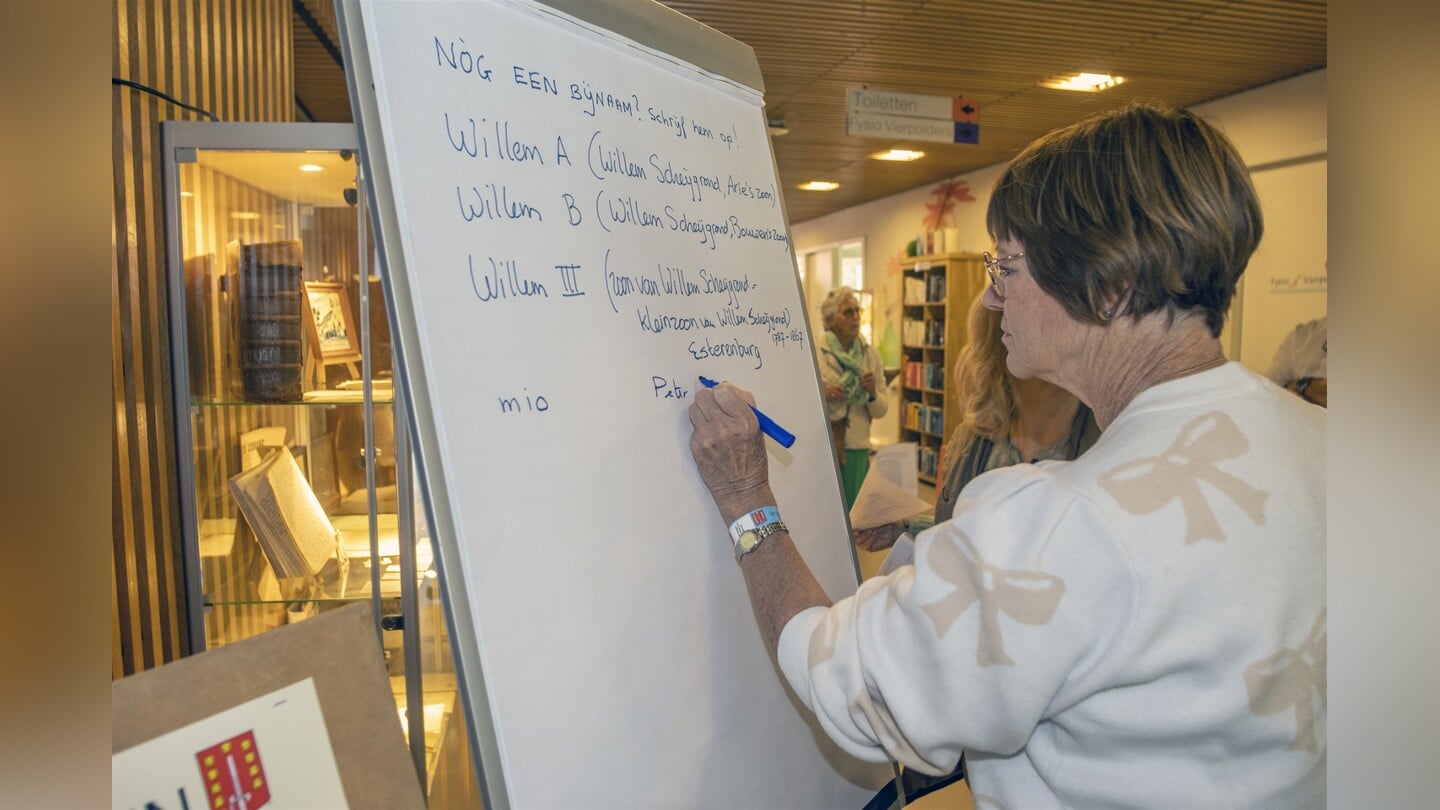 NÒG EEN BIJNAAM? Schrijf hem op!
Willem A (Willem Scheijgrond, Arie's zoon)
Willem B (Willem Scheijgrond, Bouwen's zoon)
Willem III (zoon van Willem Scheijgrond -
kleinzoon van Willem Scheijgrond)
1787-1867
Esterenburg
mio Peter
Toiletten
Fysio Vierpolders